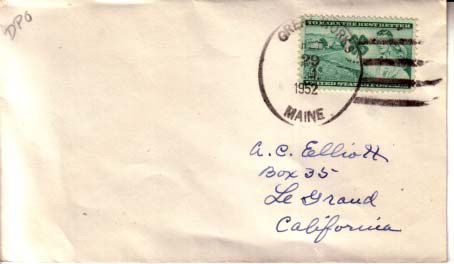 DPO
TO MAKE THE BEST BETTER
GREAT WORKS
29
1952
MAINE
UNITED STATES POSTAGE
A.C. Elliott
Box 35
Le Grand
California